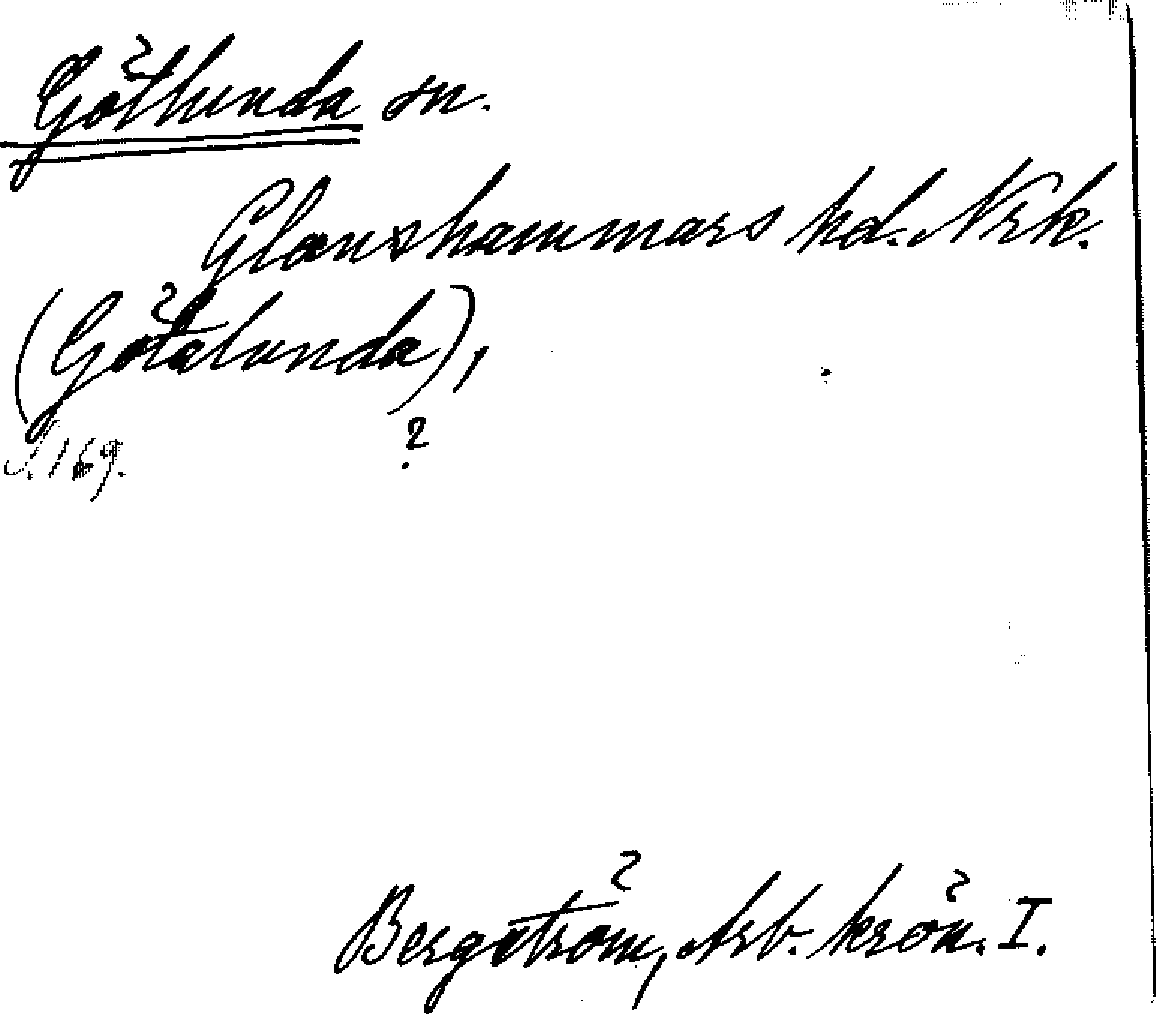 Götlunda sn.
Glanshammars hd. Nrk.
(Götalunda),
S. 169. ?
Bergström, Arb. krön. I.